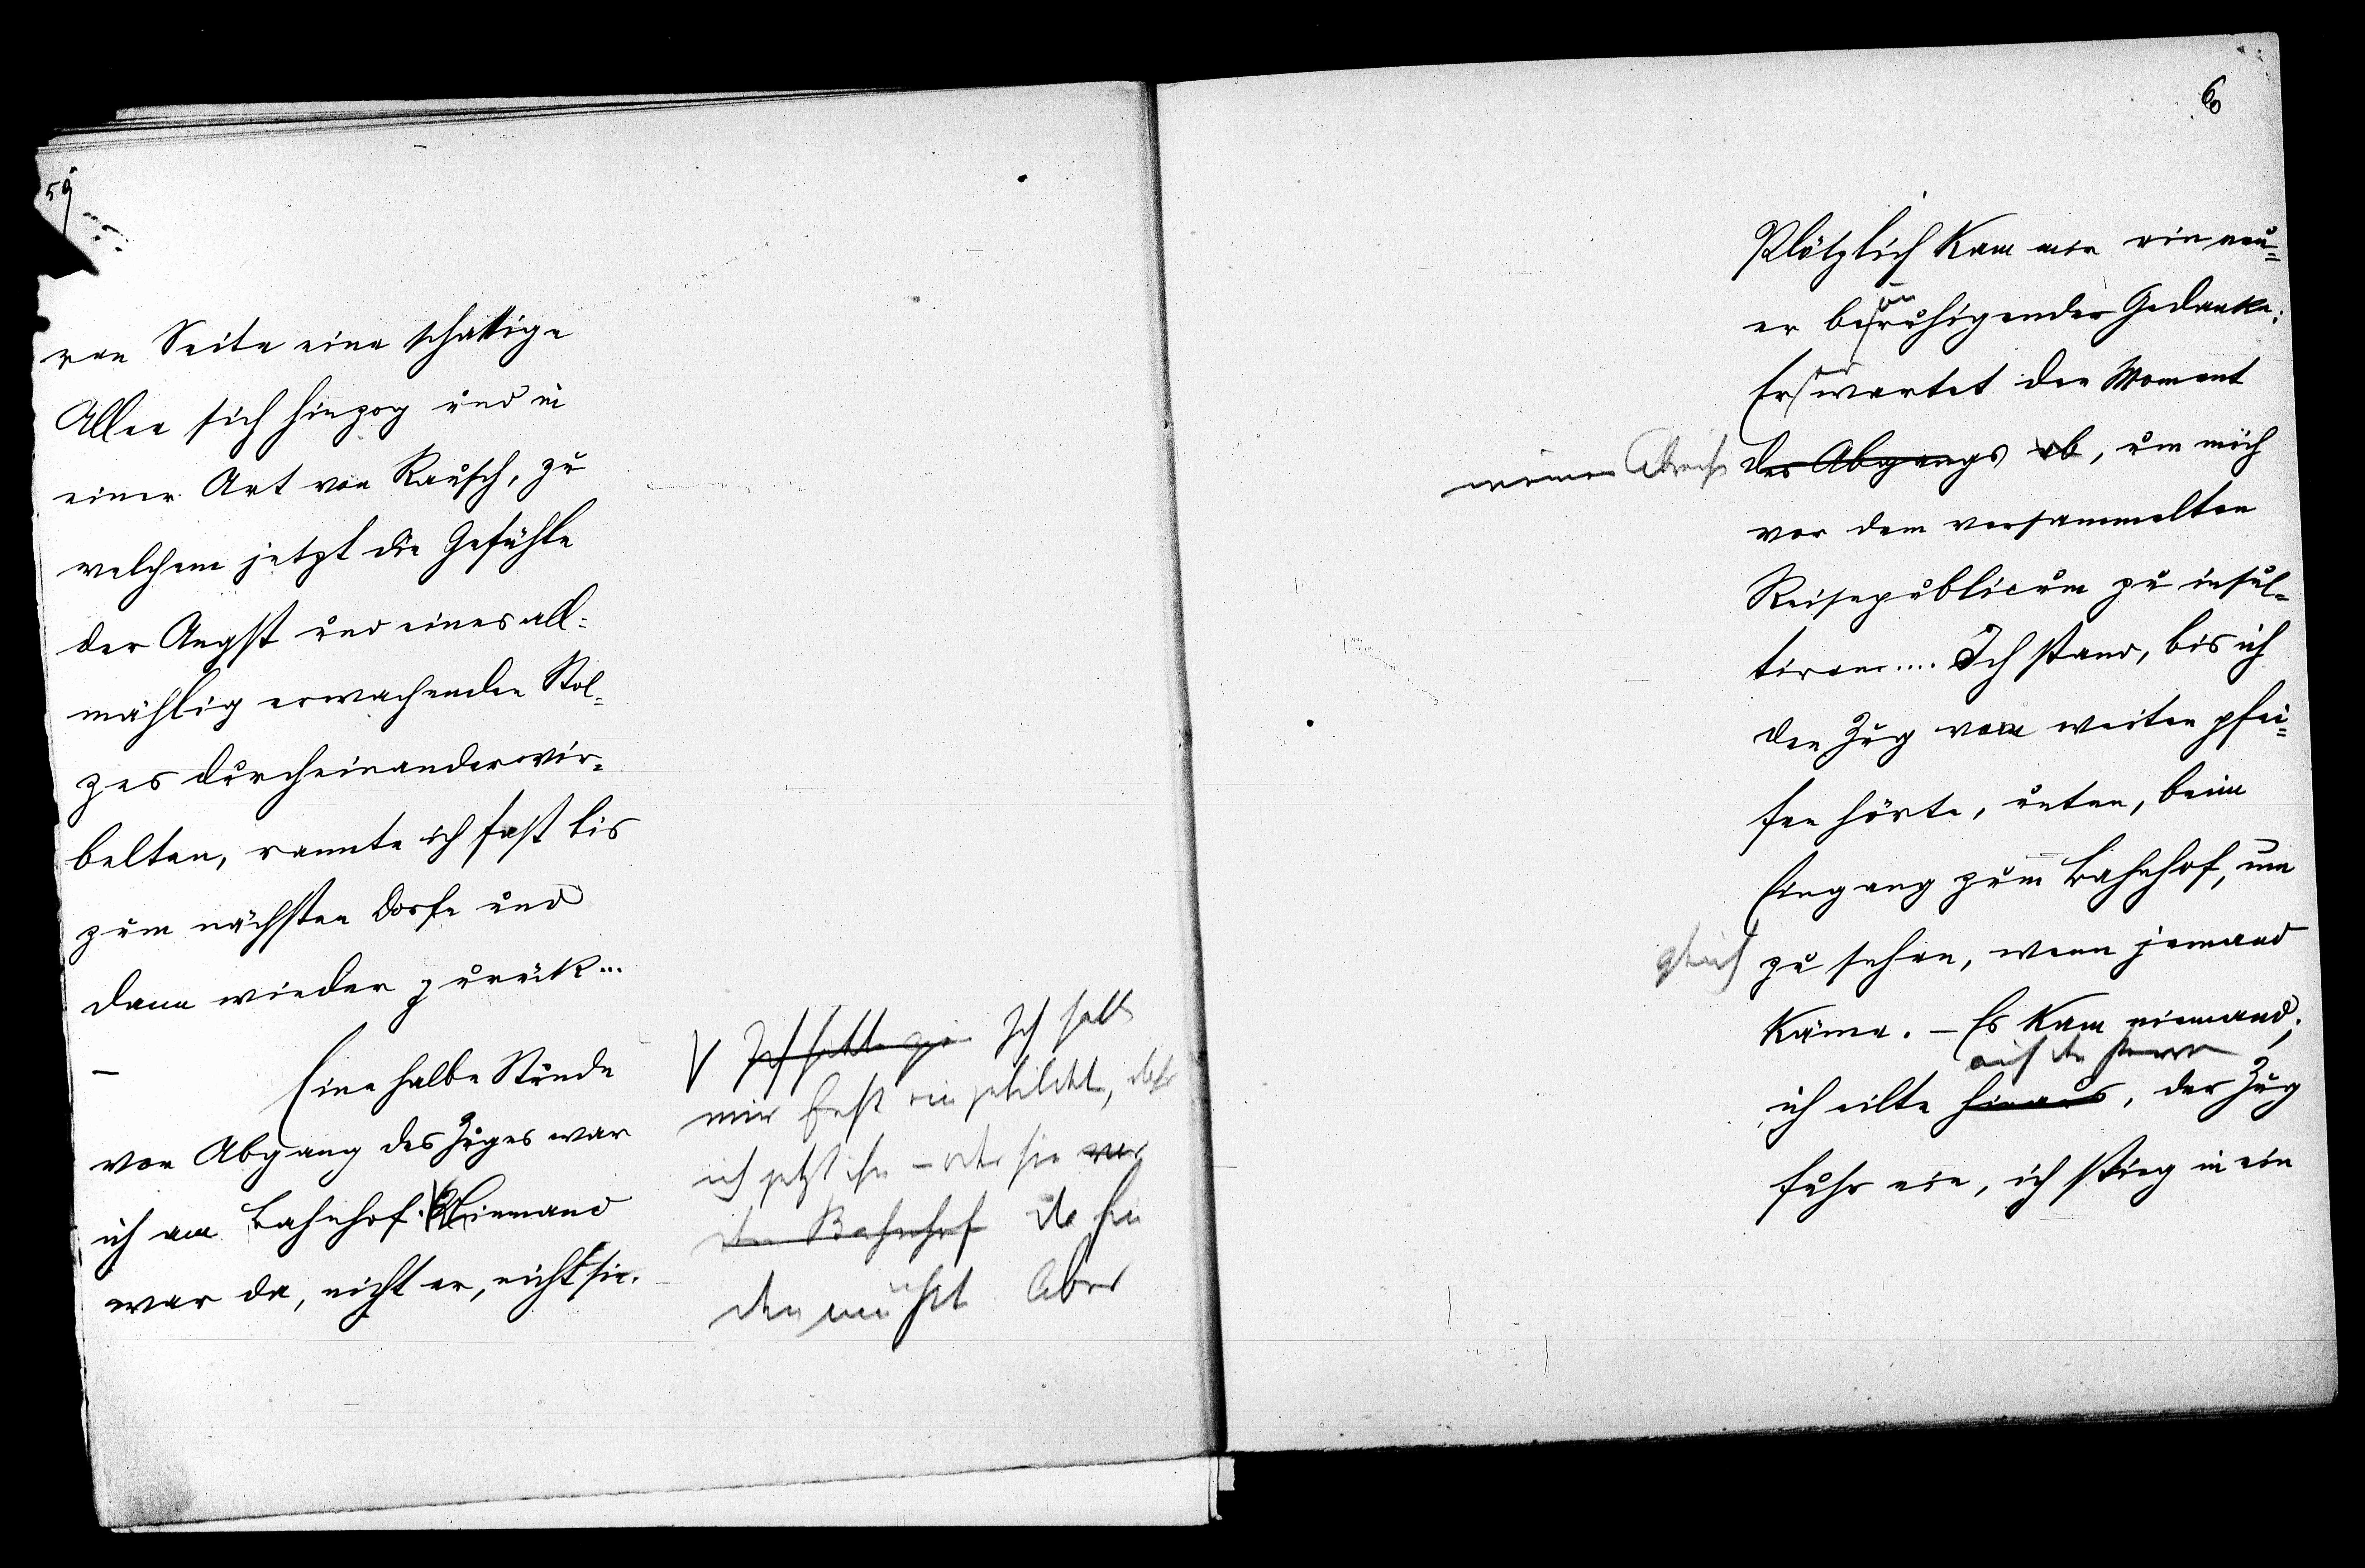 59
ren Seite eine schattige
Allee sich hinzog und in
einer Art von Rausch, zu
welchem jetzt die Gefühle
der Angst und eines all-
mählig erwachenden Stol-
zes durcheinanderwir-
belten, rannte ich fast bis
zum nächsten Dorfe und
dann wieder zurück...
– Eine halbe Stunde
vor Abgang des Zuges war
ich am Bahnhof. Niemand
war da, nicht er, nicht sie.
V Ich hatte Ich hatte
mir fest eingebildet, daß
ich jetzt ihn – oder sie
den Bahnhof da fin
den müßte. Aber
60
Plötzlich kam mir ein neu-
er beunruhigender Gedanke:
Er wartet den Moment
meiner Abreise des Abgangs ab, um mich
vor dem versammelten
Reisepublicum zu insul-
tiren.... Ich stand, bis ich
den Zug vom weiten pfei-
fen hörte, unten, beim
Eingang zum Bahnhof, um
gleich zu sehen, wenn jemand
käme. – Es kam niemand;
auf den Perron
ich eilte hinaus, der Zug
fuhr ein, ich stieg in ein